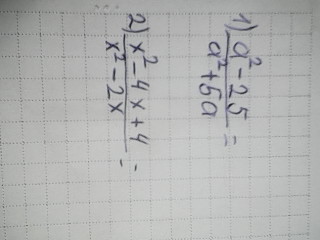 1) a² - 25 / a² + 5a =
2) x² - 4x + 4 / x² - 2x =